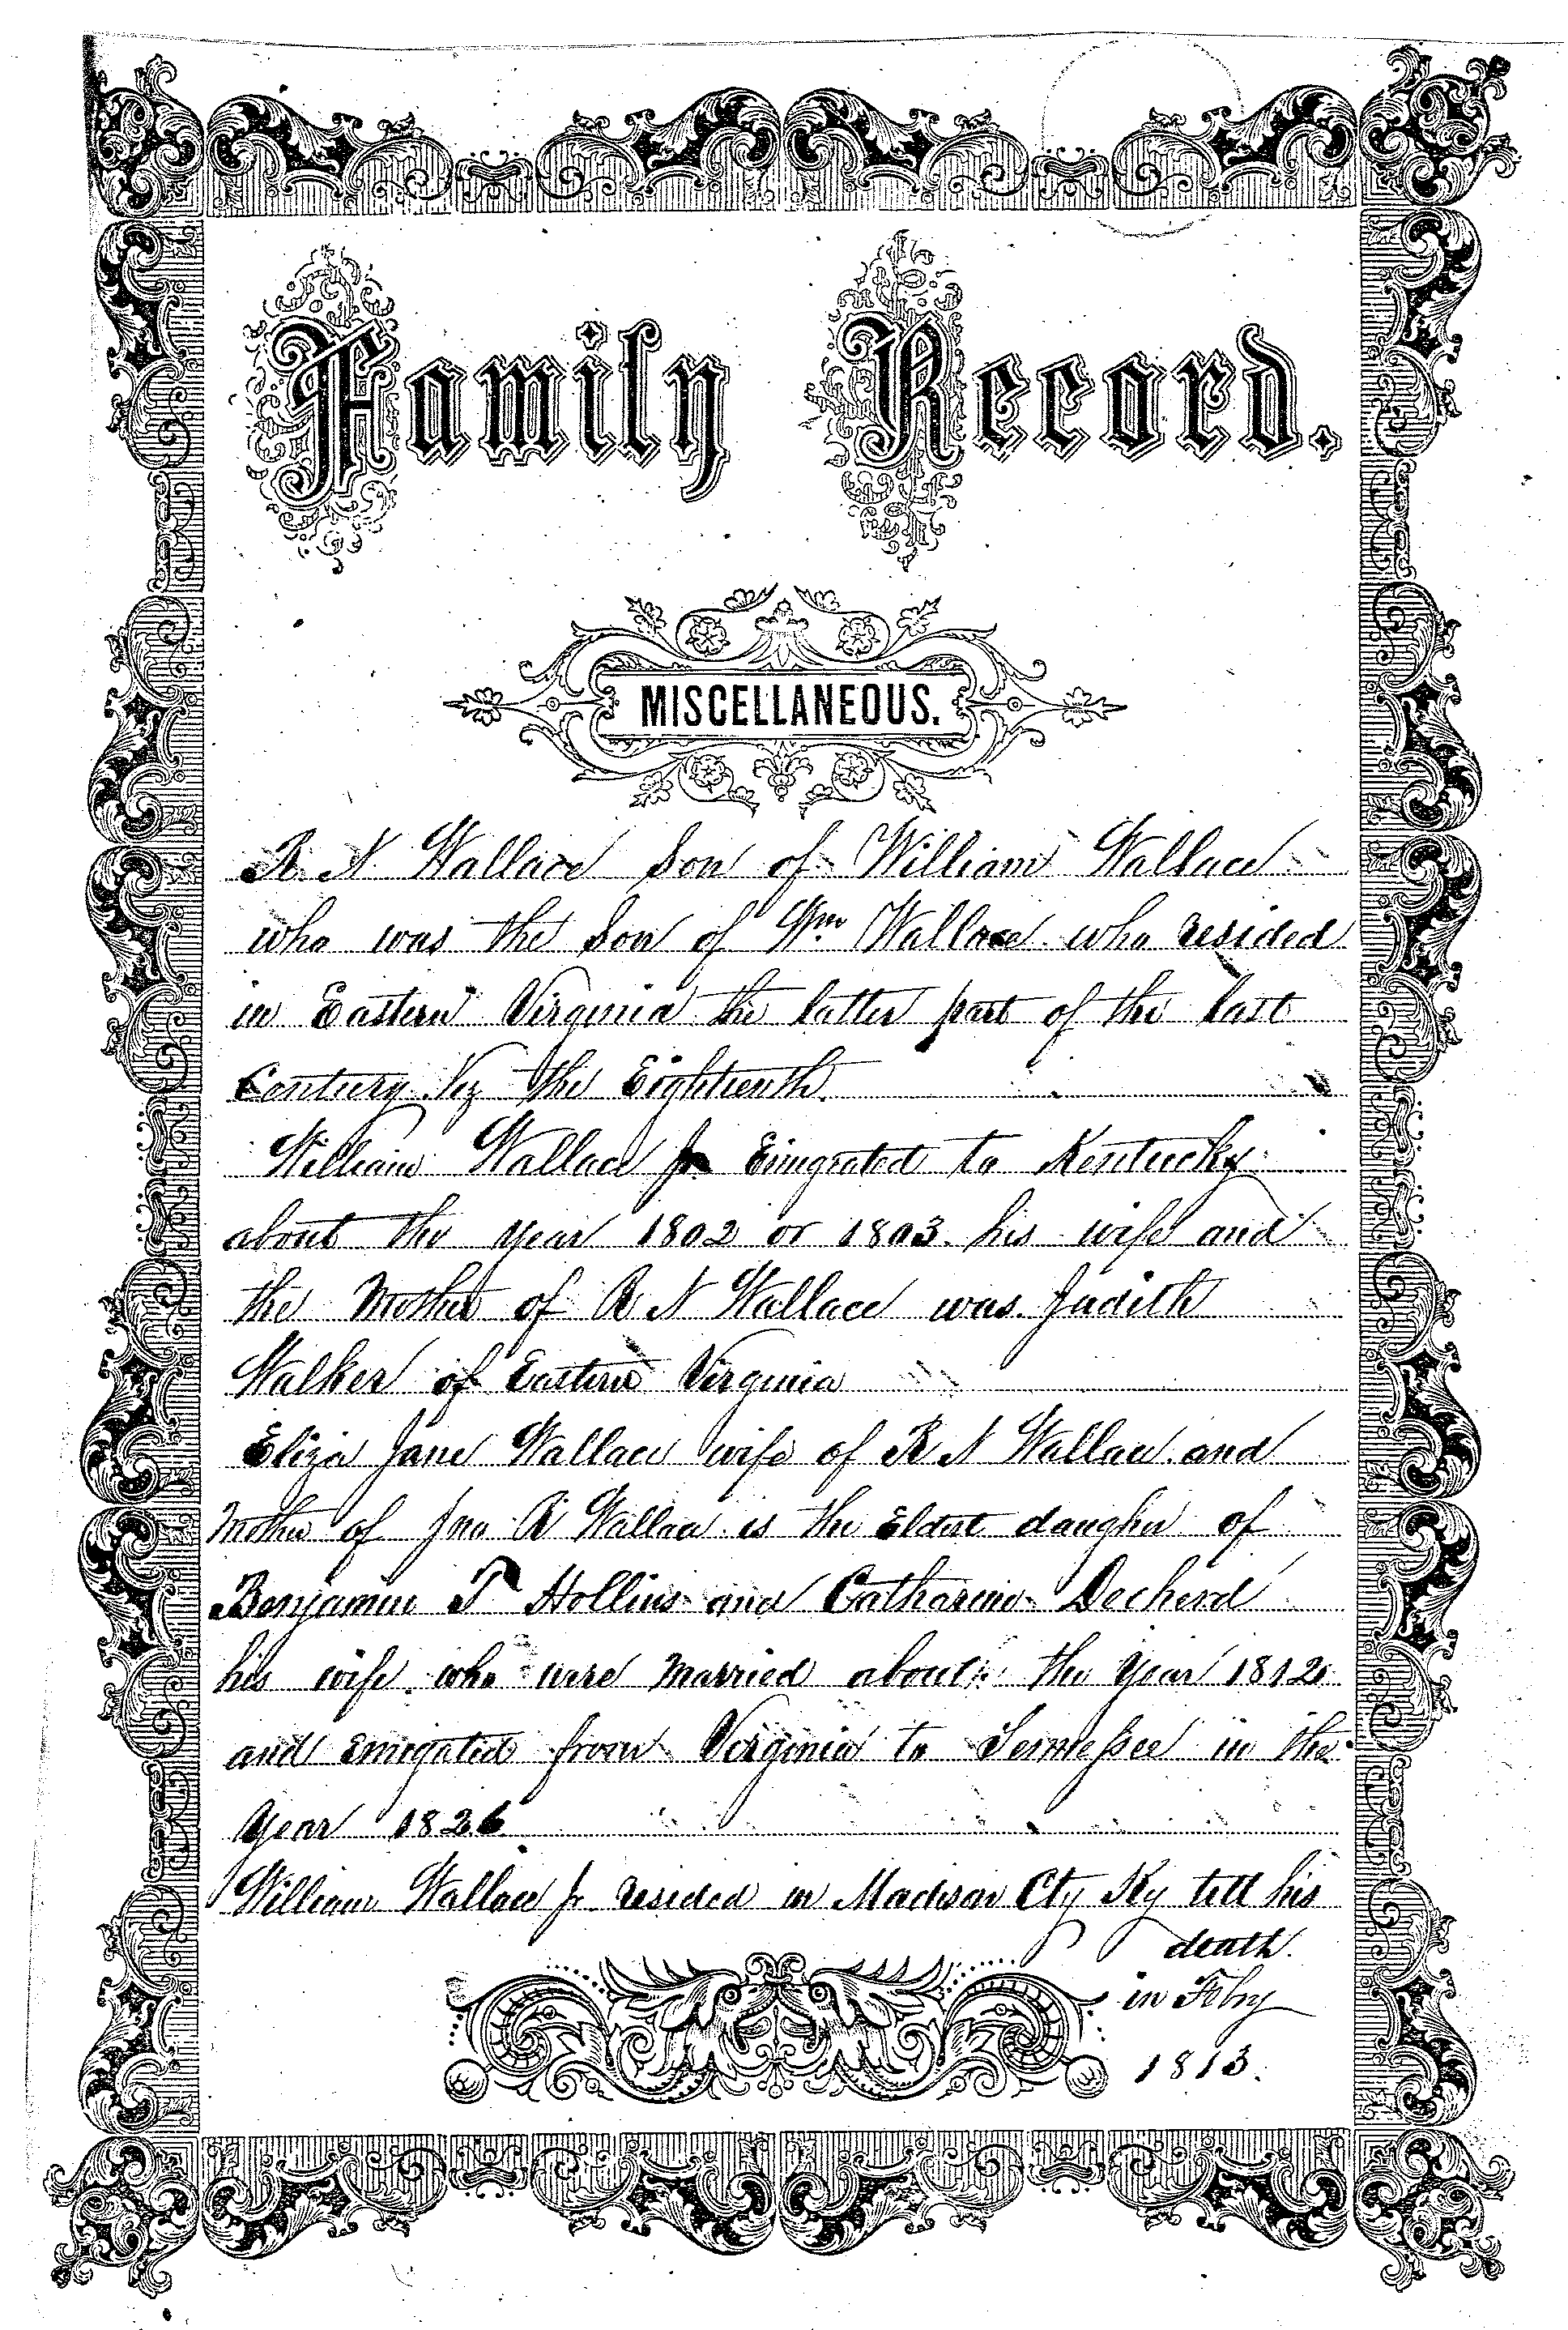 Family Record.
MISCELLANEOUS.
R. N Wallace Son of William Wallace
who was the Son of Wm Wallace who resided
in Eastern Virginia the latter part of the last
Century. Viz the Eighteenth.
William Wallace Jr Emigrated to Kentucky
about the year 1802 or 1803. his wife and
the Mother of R N Wallace was Judith
Walker of Eastern Virginia
Eliza Jane Wallace wife of R N Wallace and
Mother of Jno R Wallace is the Eldest daugher of
Benjamin Hollins and Catharine Decherd
his wife who were Married about the year 1812
and Emigated from Virginia to Tennessee in the
Year 1826
William Wallace Jr. resided in Madison Cty Ky till his
death.
in Feby
1813.